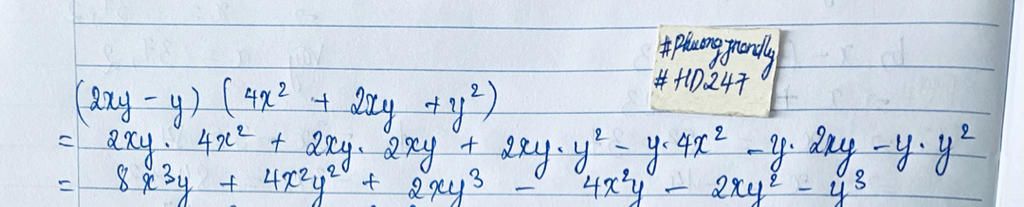 #Phuongfrandly
#HD247
(2xy - y) (4x² + 2xy + y²)
= 2xy. 4x² + 2xy. 2xy + 2xy.y² - y.4x² - y. 2xy - y.y²
= 8x³y + 4x²y² + 2xy³ - 4x²y - 2xy² - y³